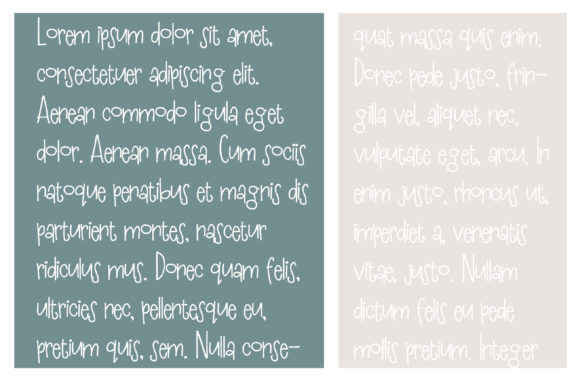 Lorem ipsum dolor sit amet,
consectetuer adipiscing elit.
Aenean commodo ligula eget
dolor. Aenean massa. Cum sociis
natoque penatibus et magnis dis
parturient montes, nascetur
ridiculus mus. Donec quam felis,
ultricies nec, pellentesque eu,
pretium quis, sem. Nulla conse-
quat massa quis enim.
Donec pede justo, frin-
gilla vel, aliquet nec,
vulputate eget, arcu. In
enim justo, rhoncus ut,
imperdiet a, venenatis
vitae, justo. Nullam
dictum felis eu pede
mollis pretium. Integer